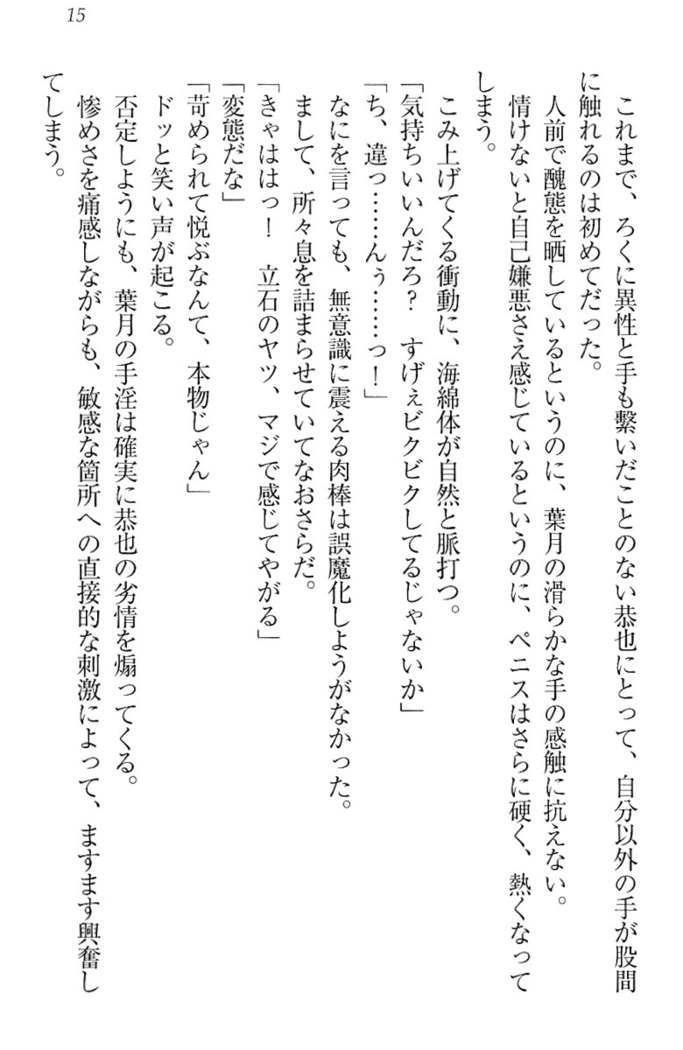 15
これまで、ろくに異性と手も繋いだことのない恭也にとって、自分以外の手が股間
に触れるのは初めてだった。
人前で醜態を晒しているというのに、葉月の滑らかな手の感触に抗えない。
情けないと自己嫌悪さえ感じているというのに、ペニスはさらに硬く、熱くなって
しまう。
こみ上げてくる衝動に、海綿体が自然と脈打つ。
「気持ちいいんだろ?　すげぇビクビクしてるじゃないか」
「ち、違っ……んぅ……っ!」
なにを言っても、無意識に震える肉棒は誤魔化しようがなかった。
まして、所々息を詰まらせていてなおさらだ。
「きゃははっ!　立石のヤツ、マジで感じてやがる」
「変態だな」
「苛められて悦ぶなんて、本物じゃん」
ドッと笑い声が起こる。
否定しようにも、葉月の手淫は確実に恭也の劣情を煽ってくる。
惨めさを痛感しながらも、敏感な箇所への直接的な刺激によって、ますます興奮し
てしまう。